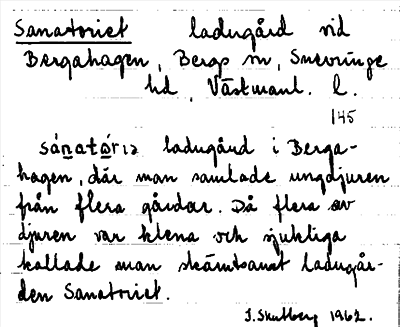 Sanatoriet ladugård vid
Bergahagen, Bergs sn, Snevringe
hd, Västmanl. l.
145
sánatòriɘ ladugård i Berga-
hagen, där man samlade ungdjuren
från flera gårdar. Då flera av
djuren var klena och sjukliga
kallade man skämtsamt ladugår-
den Sanatoriet.
J. Skutberg 1962.